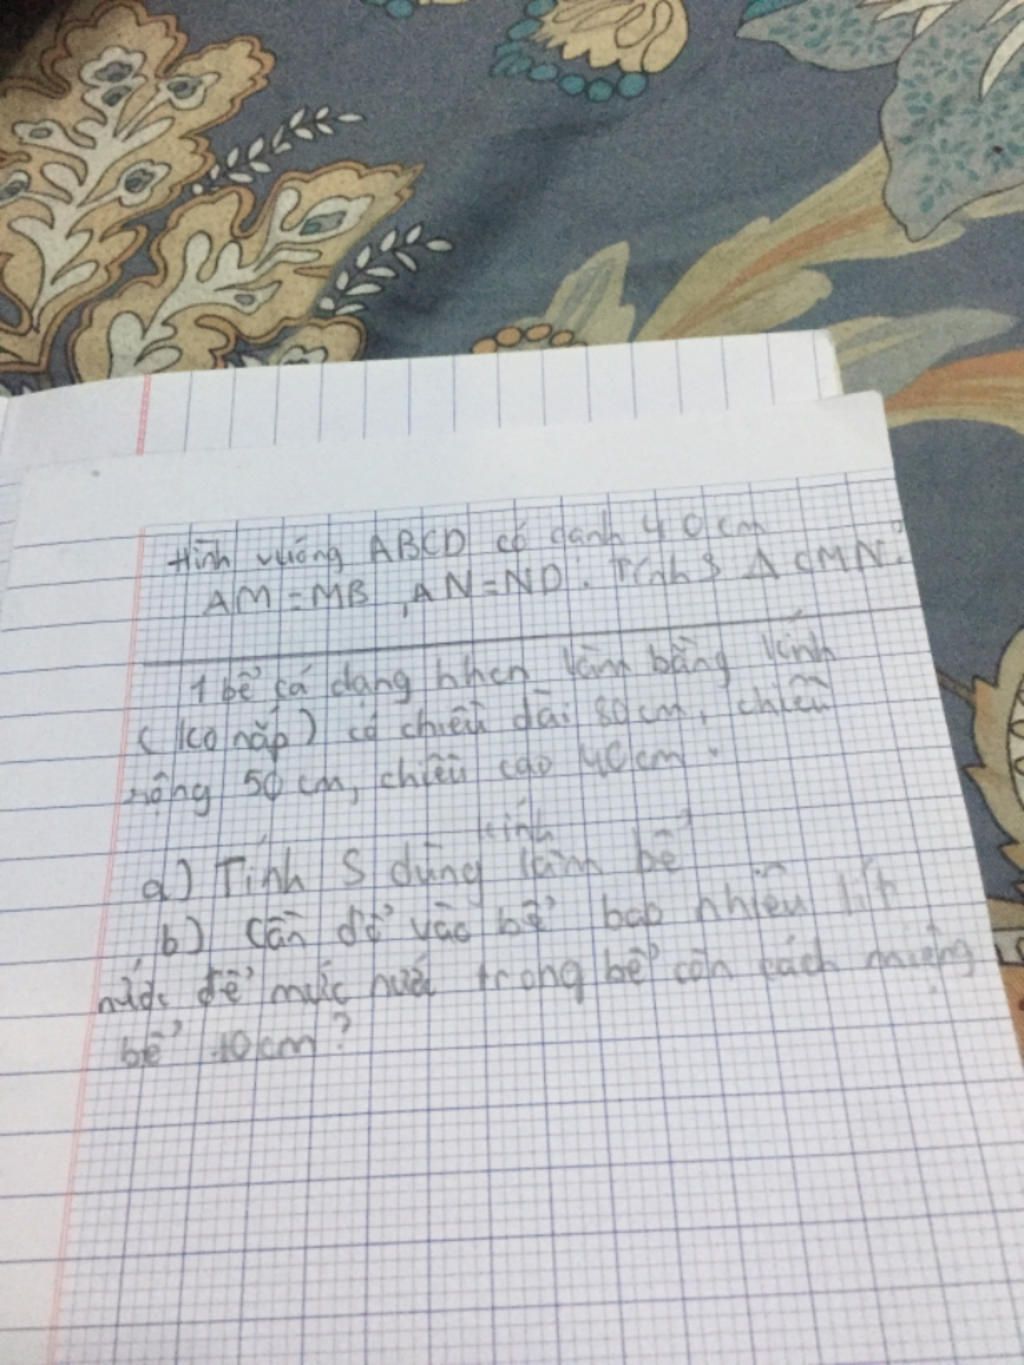 Hình vuông ABCD có cạnh 40 cm
AM = MB, AN = ND. Tính S Δ CMN?
1 bể cá dạng hhcn làm bằng kính
(ko nắp) có chiều dài 80 cm, chiều
rộng 50 cm, chiều cao 40 cm.
kính
a) Tính S dùng làm bể
b) Cần đổ vào bể bao nhiêu lít
nước để mức nước trong bể còn cách miệng
bể 10 cm?